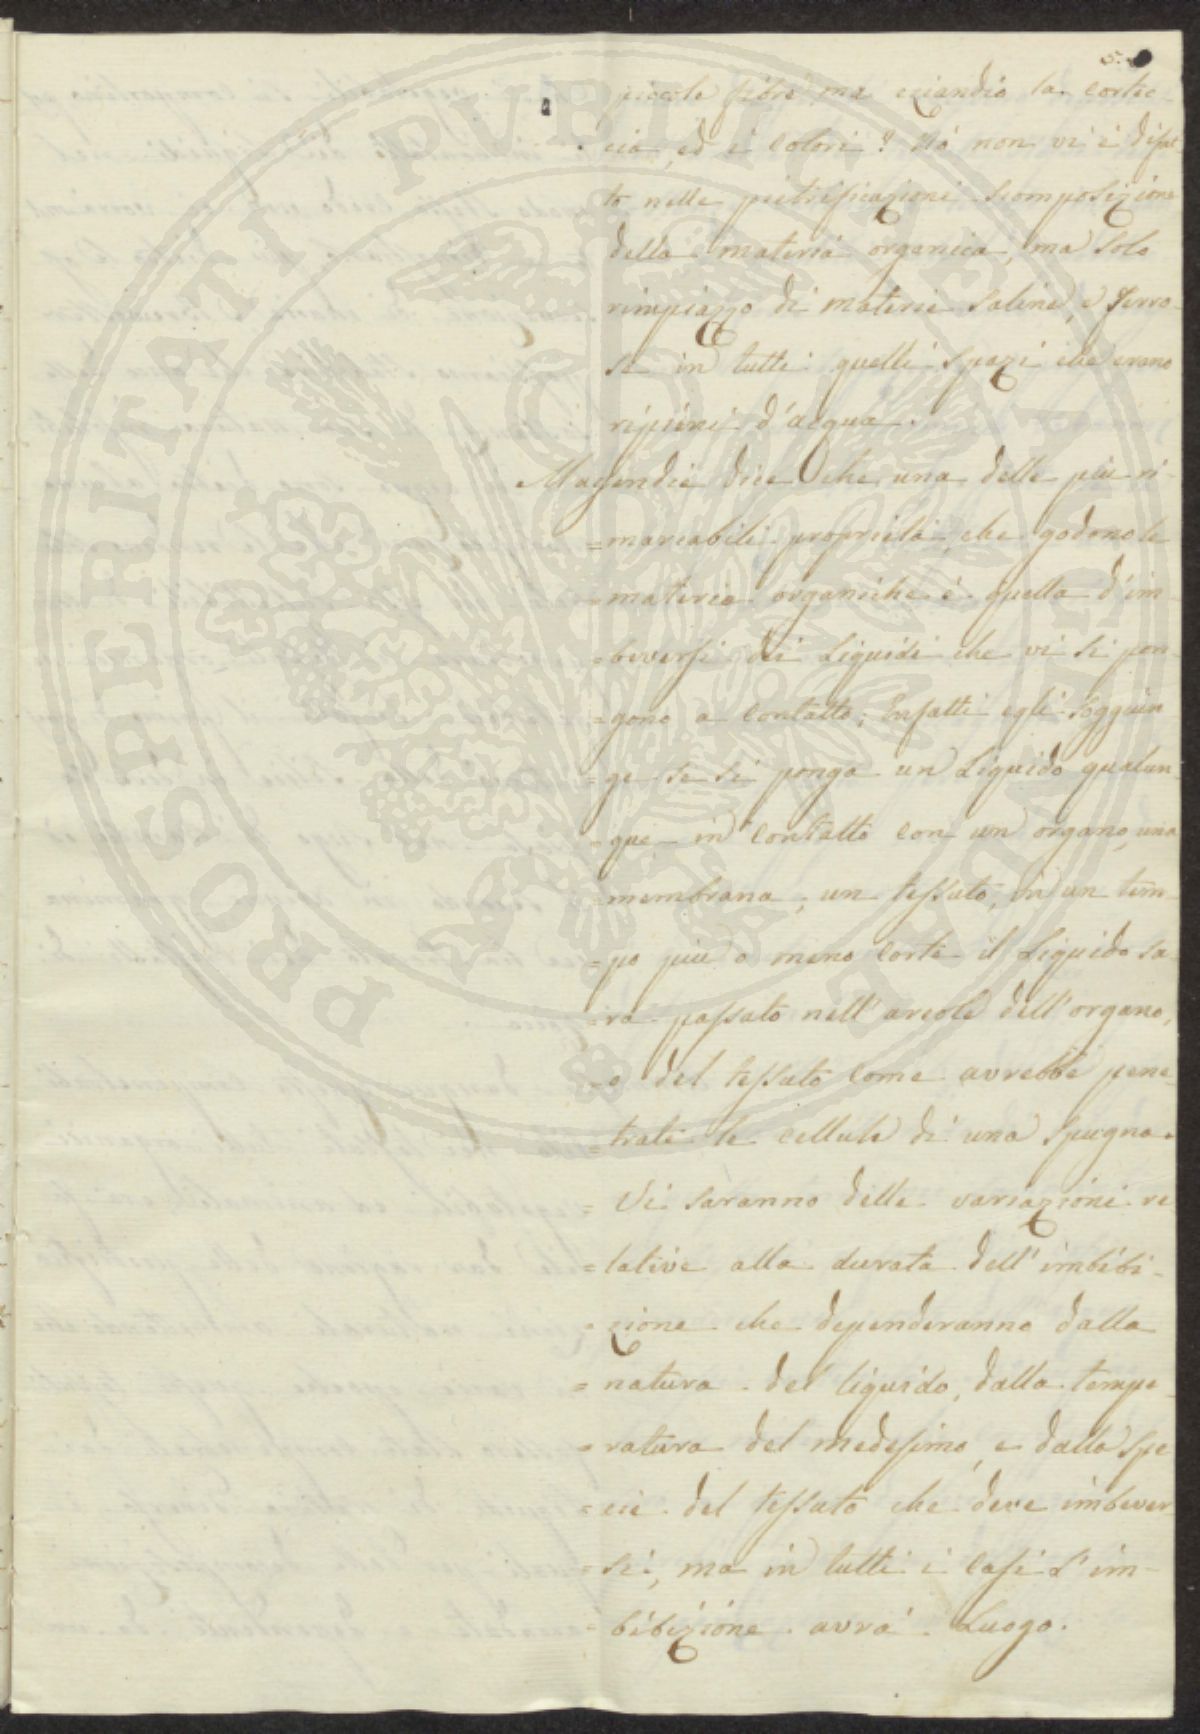 5.
piccole fibre ma eziandio la cortec-
cia, ed i colori? Ma non vi è difat-
to nelle pietrificazioni scomposizione
della materia organica, ma solo
rimpiazzo di materie saline, e ferro-
se in tutti quelli spazi che erano
ripieni d'acqua.
Magendie dice che una delle più ri-
=marcabili proprietà che godono le
=materie organiche è quella d'im-
=beversi dei liquidi che vi si pon-
=gono a contatto; Infatti egli soggiun-
=ge se si ponga un liquido qualun-
=que in contatto con un organo, una
=membrana, un tessuto, in un tem-
=po più o meno corto il liquido sa-
=rà passato nell'areole dell'organo,
=o del tessuto come avrebbe pene-
=trate le cellule di una spugna.
= Vi saranno delle variazioni re
=lative alla durata dell'imbibi-
=zione che dipenderanno dalla
=natura del liquido, dalla tempe-
=ratura del medesimo, e dalla spe
=cie del tessuto che deve imbever
=si, ma in tutti i casi l'im-
=bibizione avrà luogo.
PROSPERITATI PVBLICAE AVGENDAE